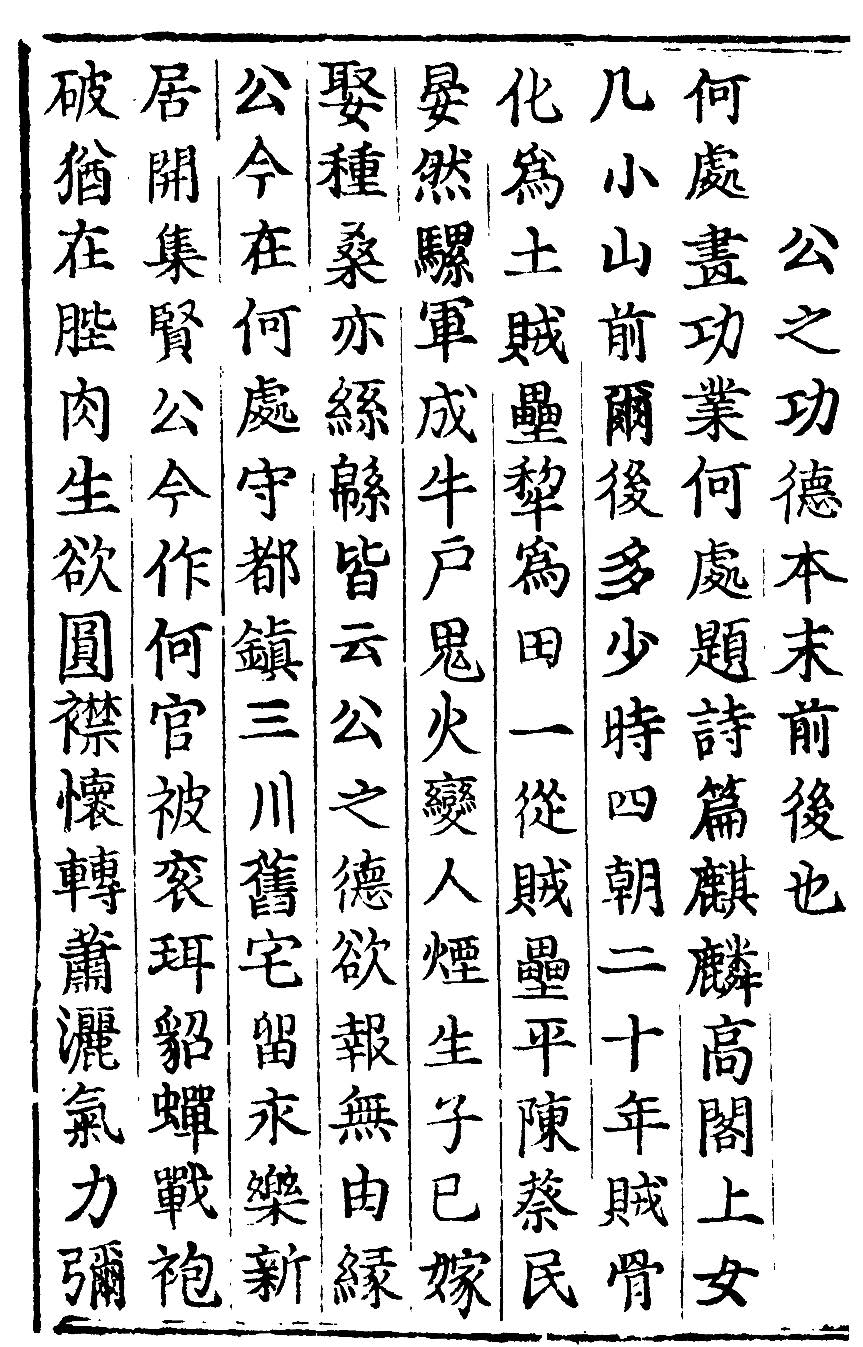 公之功德本末前後也
何處畫功業何處題詩篇麒麟高閣上女
几小山前爾後多少時四朝二十年賊骨
化爲土賊壘犂爲田一從賊壘平陳蔡民
晏然騾軍成牛戶鬼火變人煙生子已嫁
娶種桑亦絲緜皆云公之德欲報無由緣
公今在何處守都鎭三川舊宅留永樂新
居開集賢公今作何官被衮珥貂蟬戰袍
破猶在髀肉生欲圓襟懷轉蕭灑氣力彌